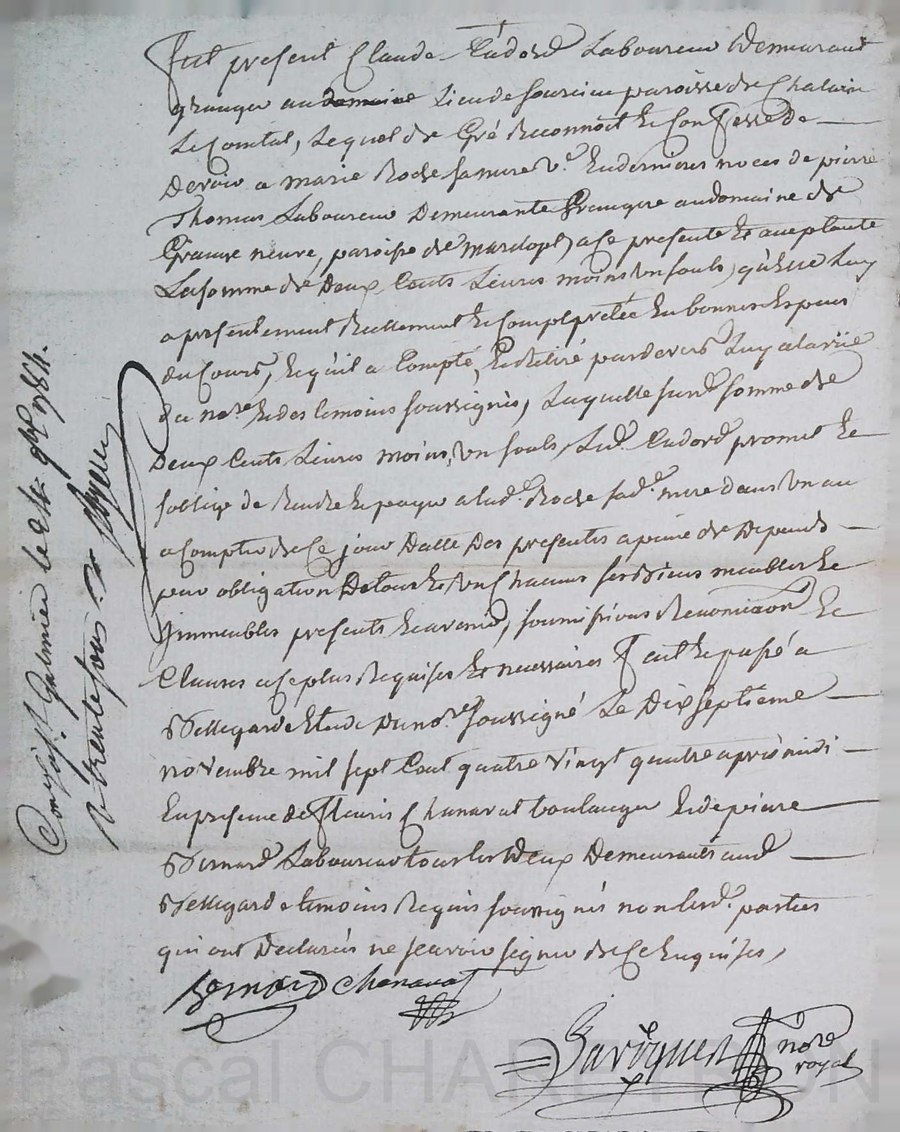 Fut présent Claude Cadord Laboureur Demeurant
granger au domaine Lieu de fourcieu paroisse de Chalain
Le Comtal, Lequel de Gré Reconnoit Et Confesse de
devoir a marie Roche sa mere ve. En dernieres noces de pierre
Thomas Laboureur Demeurante Grangere au domaine de
Grange neuve, paroisse de Mardope, a Ce presente Et acceptante
La somme de Deux Cents Livres moins un souls, qu'Elle Luy
a presentement Reellement Et Compt prêtée En bonnes Especes
du Cours, Et qu'il a Compté, Et Retiré pardevers Luy a la vüe
du nore. Et des temoins soussignés, Laquelle susd. somme de
Deux Cents Livres moins, un souls Led. Cadord promet Et
s'oblige de Rendre Et payer a lad. Roche sad. mere dans un an
a Compter de Ce jour Datte Des presentes a peine de Depends
pour obligation De tous Et un Chacuns ses Biens meubles Et
Immeubles presents Et avenir, soumissions Renonciaon Et
Clauses a Ce plus Requises Et necessaires Fait Et passé a
Bellegarde Etude Du nore. soussigné Le Dix septieme
novembre mil sept Cent quatre vingt quatre après midi
En presence de Fleuris Chanavat boulanger Et de pierre
Bernard Laboureur tous les Deux Demeurants aud.
Bellegarde temoins Requis soussignés non lesd. parties
qui ont Declarés ne sçavoir signer de Ce Enquises,
Bernard Chanavat
nore
royal
St. Galmier le 24. 9bre 1784.
R trente sous
Pascal CHAR